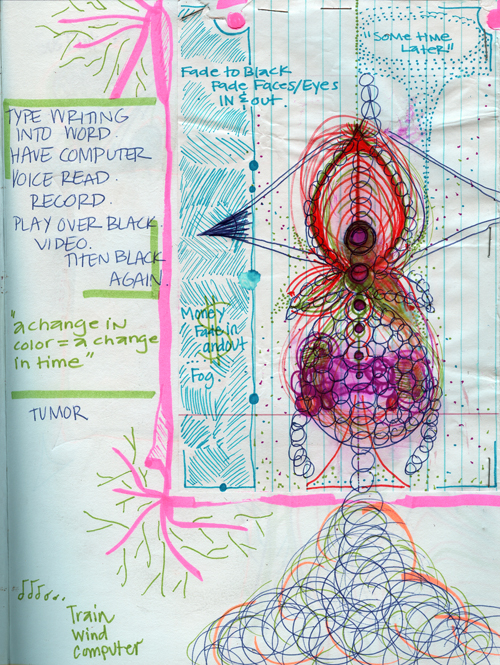 "SOME TIME
LATER"
Fade to Black
Fade Faces/Eyes
IN & out.
TYPE WRITING
INTO WORD.
HAVE COMPUTER
VOICE READ.
RECORD.
PLAY OVER BLACK
VIDEO.
THEN BLACK
AGAIN
"a change in
color = a change
in time"
Money
Fade in
and out
Fog.
TUMOR
Train
Wind
Computer